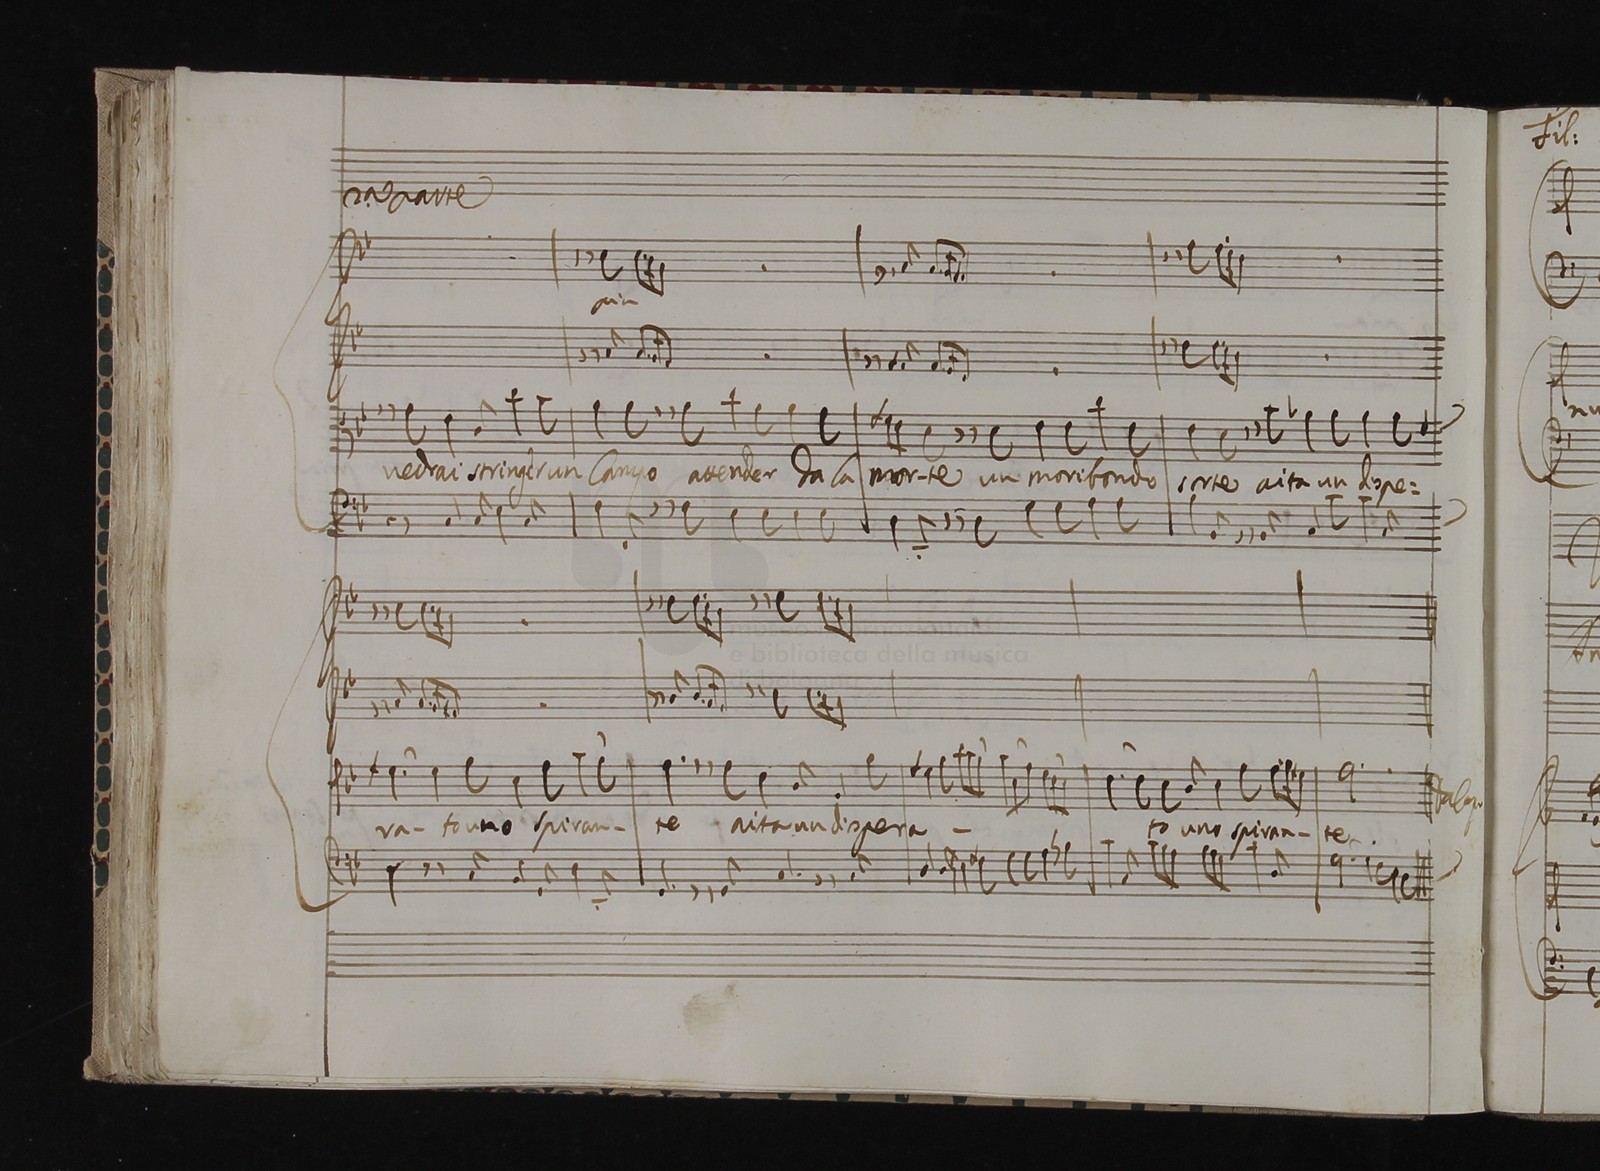 Fil:
2.a parte
pia
vedrai stringer un Capo attender da la mor-te un moribondo sorte aita un dispe=
museo internazionale
e biblioteca della musica
di bologna
ra- to uno spiran- te aita un dispera - to uno spiran- te.